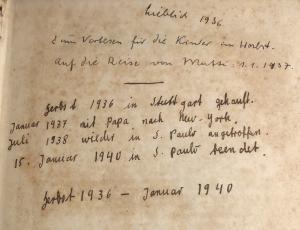 1936
Zum Vorlesen für die Kinder im Herbst.
Auf die Reise von Mutti 1.1.1937.
Herbst 1936 in Stuttgart gekauft.
Januar 1937 mit Papa nach New-York.
Juli 1938 wieder in S. Paulo angetroffen.
15. Januar 1940 in S. Paulo beendet.
Herbst 1936 – Januar 1940